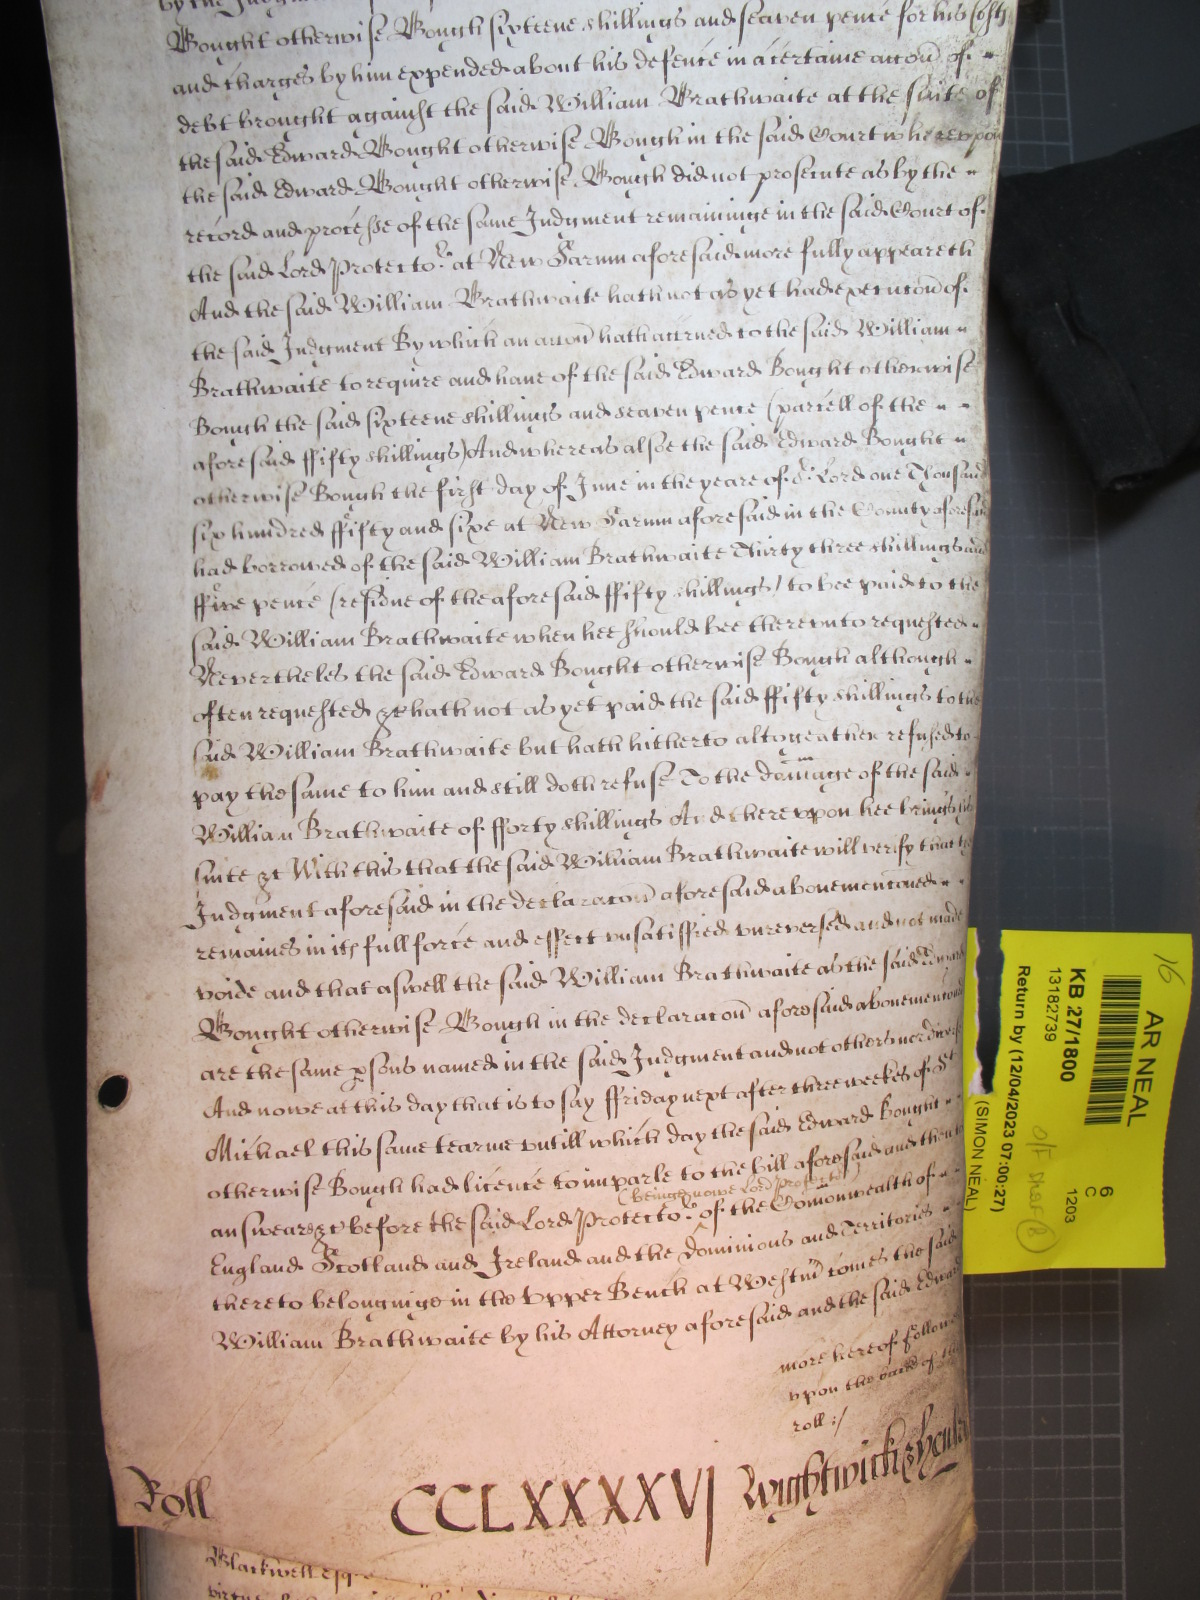 by the Judgment
Bought otherwise Bough sixteene shillings and seaven pence for his Costs
and Charges by him expended about his defence in a certaine accon̄ of
debt brought against the said William Brathwaite at the suite of
the said Edward Bought otherwise Bough in the said Court wherevpon
the said Edward Bought otherwise Bough did not prosecute as by the
record and processe of the same Judgment remaininge in the said Court of
the said Lord Protector at New Sarum aforesaid more fully appeareth
And the said William Brathwaite hath not as yet had execucon̄ of
the said Judgment By which an accon̄ hath accrued to the said William
Brathwaite to require and have of the said Edward Bought otherwise
Bough the said sixteene shillings and seaven pence (parcell of the
aforesaid ffifty shillings) And whereas alsoe the said Edward Bought
otherwise Bough the first day of June in the yeare of or Lord one Thousand
six hundred ffifty and sixe at New Sarum aforesaid in the County aforesaid
had borrowed of the said William Brathwaite Thirty three shillings and
ffive pence (residue of the aforesaid ffifty shillings) to bee paid to the
said William Brathwaite when hee should bee therevnto requested
Nevertheles the said Edward Bought otherwise Bough although
often requested &c hath not as yet paid the said ffifty shillings to the
said William Brathwaite but hath hitherto altogeather refused to
pay the same to him and still doth refuse To the dam̄age of the said
William Brathwaite of fforty shillings And therevpon hee brings his
suite &c With this that the said William Brathwaite will verify that the
Judgment aforesaid in the declaracon̄ aforesaid abovemenc̄oned
remaines in its full force and effect vnsatisffied vnreversed and not made
voide and that aswell the said William Brathwaite as the said Edward
Bought otherwise Bough in the declaracon̄ aforesaid abovemenc̄oned
are the same p̱sons named in the said Judgment and not others nor divers
And nowe at this day that is to say ffriday next after three weekes of St
Michael this same tearme vntill which day the said Edward Bought
otherwise Bough had licence to imparle to the bill aforesaid and then to
(beinge nowe Lord Protector)
answeare &c before the said Lord Protector of the Com̄onwealth of
England Scotland and Ireland and the Dominions and Territories
thereto belonginge in the Vpper Bench at Westm̄ comes the said
William Brathwaite by his Attorney aforesaid and the said Edward
more hereof followes
vpon the back of this
roll :/
Roll CCLXXXXVJ Wightwick &
Blackwell esqr
AR NEAL
KB 27/1800
13182739
Return by (12/04/2023 07:00:27)
(SIMON NEAL)
6
C
1203
16